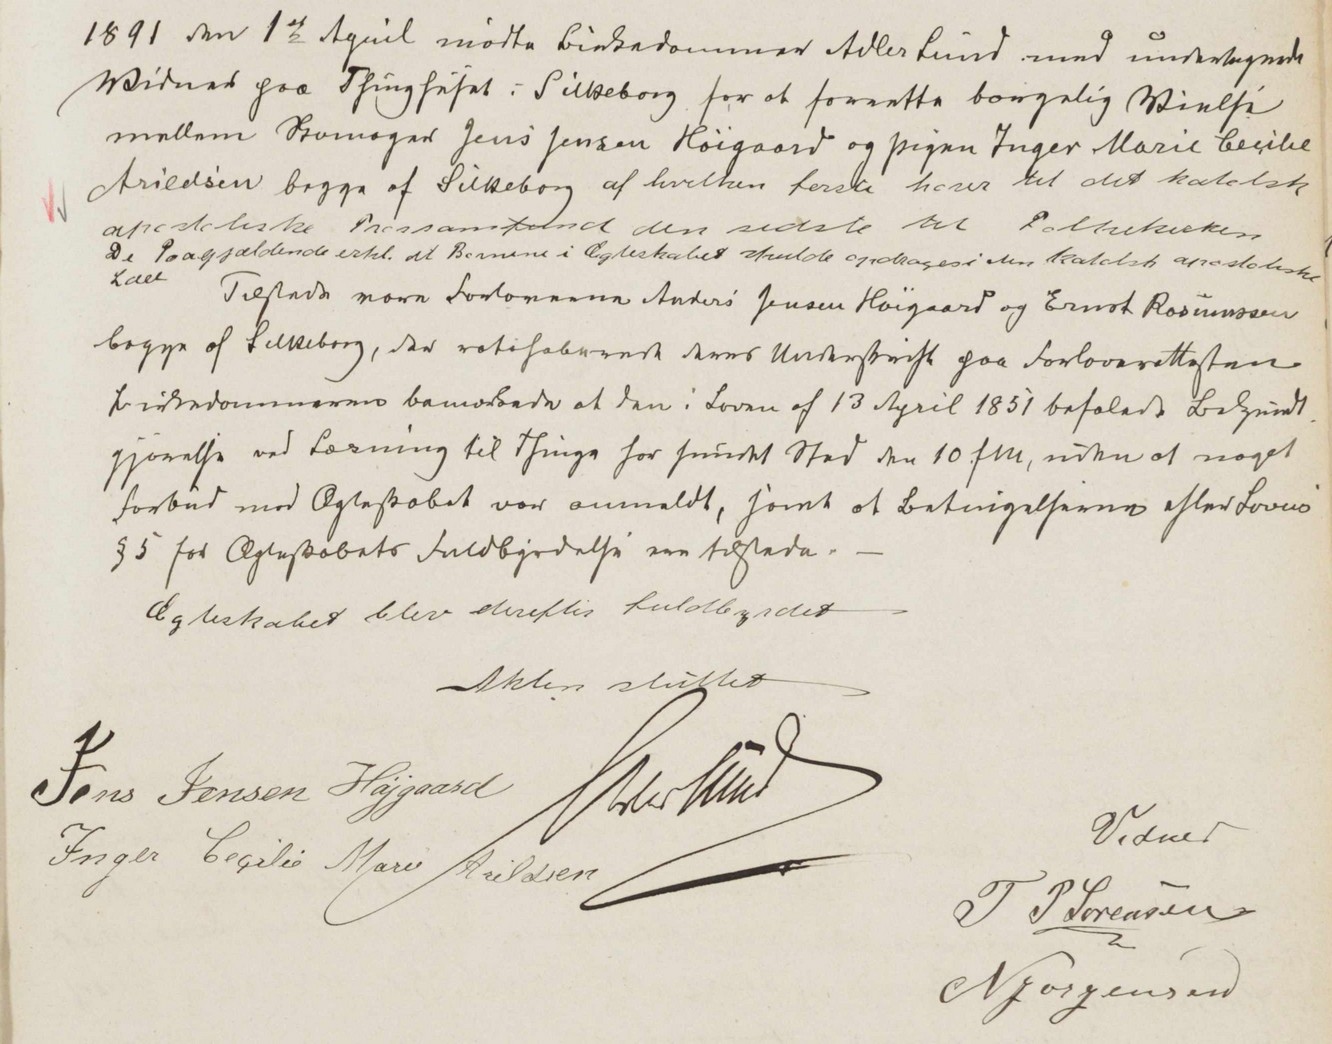 1891 den 1st April mødte Birkedommer Adler Lund med undertegnede
Vidner paa Thinghuset i Silkeborg for at foretage borgelig Vielse
mellem Skomager Jens Jensen Höigaard og pigen Inger Marie Cecilie
Arildsen begge af Silkeborg af hvilken første hører til det katolsk
apostoliske Trossamfund den sidste til Folkekirken
De Paagjældende erkl. at Børnene i Ægteskabet skulde opdrages i den katolsk apostoliske
Tilstede vare Forloverne Anders Jensen Höigaard og Ernst Rasmussen
begge af Silkeborg, der ratihaberede deres Underskrift paa Forloverattesten
Birkedommeren bemærkede at den i Loven af 13 April 1851 befalede Bekjendt
gjørelse ved Læsning til Thinge har fundet Sted den 10 f.M, uden at noget
Forbud mod Ægteskabet var anmeldt, samt at Betingelserne efter Lovens
§ 5 for Ægteskabets Fuldbyrdelse ere tilstede. —
Ægteskabet blev derefter fuldbyrdet
Akten sluttet
Adler Lund
Jens Jensen Højgaard
Inger Cecilie Marie Arildsen
Vidner
T P Sørensen
N Jørgensen